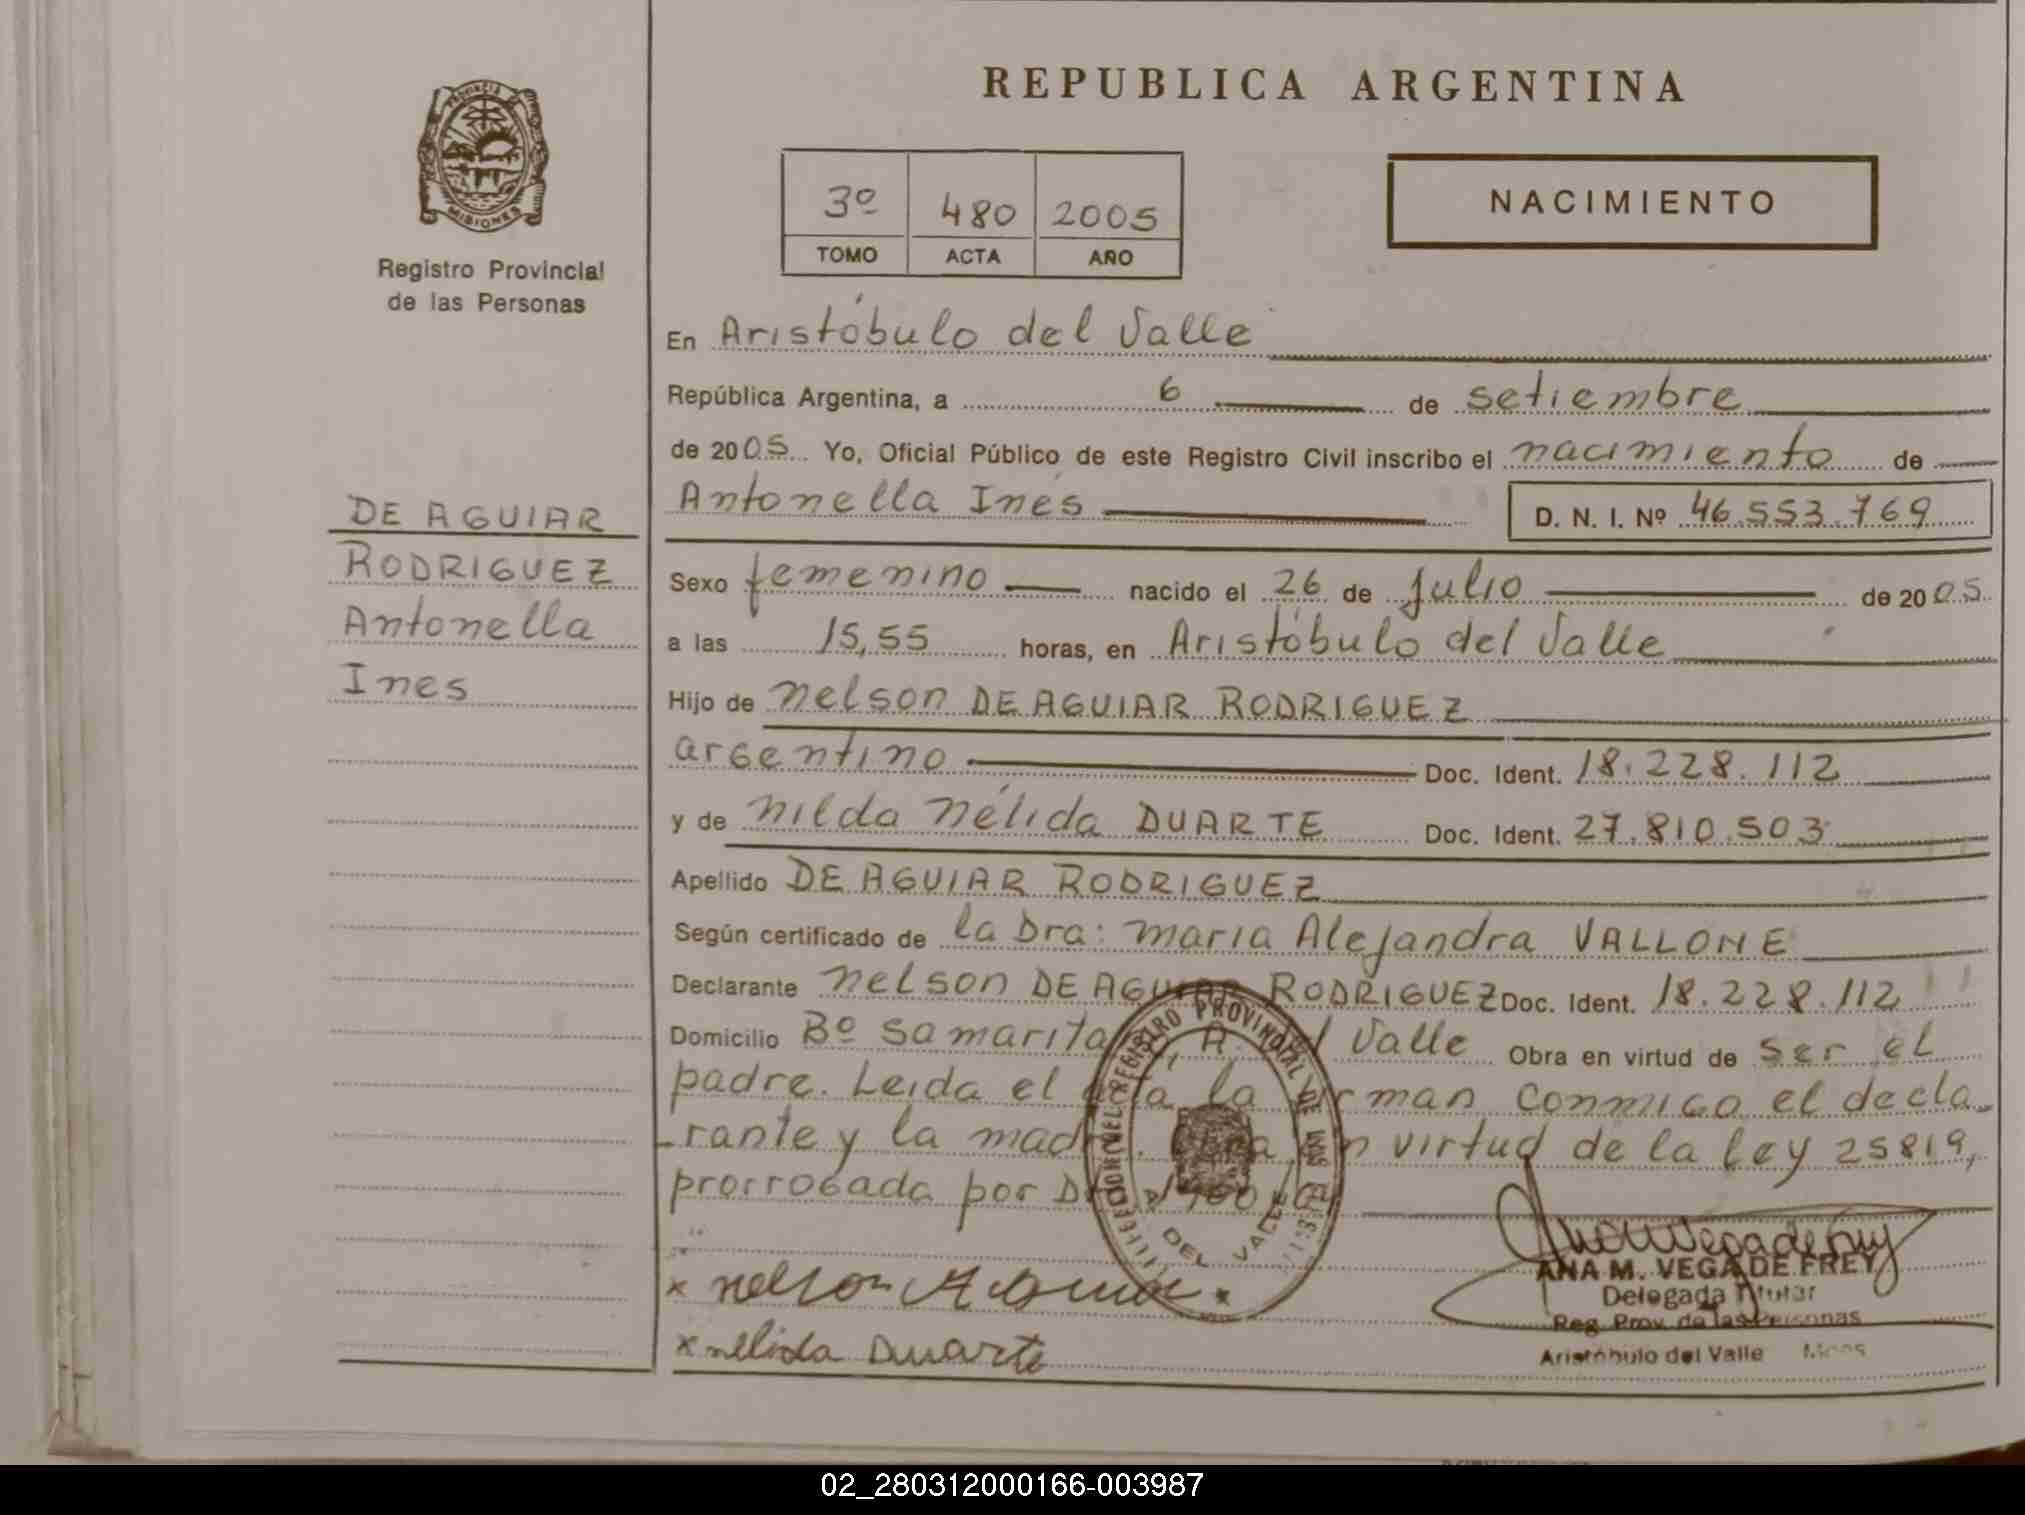 REPUBLICA ARGENTINA
PROVINCIA DE
MISIONES
Registro Provincial
de las Personas
3º 480 2005
TOMO ACTA AÑO
NACIMIENTO
DE AGUIAR
RODRIGUEZ
Antonella
Ines
En Aristóbulo del Valle
República Argentina, a 6 de setiembre
de 2005 Yo, Oficial Público de este Registro Civil inscribo el nacimiento de
Antonella Inés D. N. I. Nº 46.553.769
Sexo femenino nacido el 26 de Julio de 2005
a las 15,55 horas, en Aristóbulo del Valle
Hijo de Nelson DE AGUIAR RODRIGUEZ
argentino Doc. Ident. 18.228.112
y de Nilda Nélida DUARTE Doc. Ident. 27.810.503
Apellido DE AGUIAR RODRIGUEZ
Según certificado de la Dra: Maria Alejandra VALLONE
Declarante Nelson DE AGUIAR RODRIGUEZ Doc. Ident. 18.228.112
Domicilio Bº Samarita Valle Obra en virtud de ser el
padre. Leida el acta la firman conmigo el decla
rante y la madre. en virtud de la ley 25819,
prorrogada por
REGISTRO PROVINCIAL DE LAS
DEL VALLE
x nelson
x nelida Duarte
ANA M. VEGA DE FREY
Delegada Titular
Reg. Prov. de las Personas
Aristóbulo del Valle Mnes
02_280312000166-003987